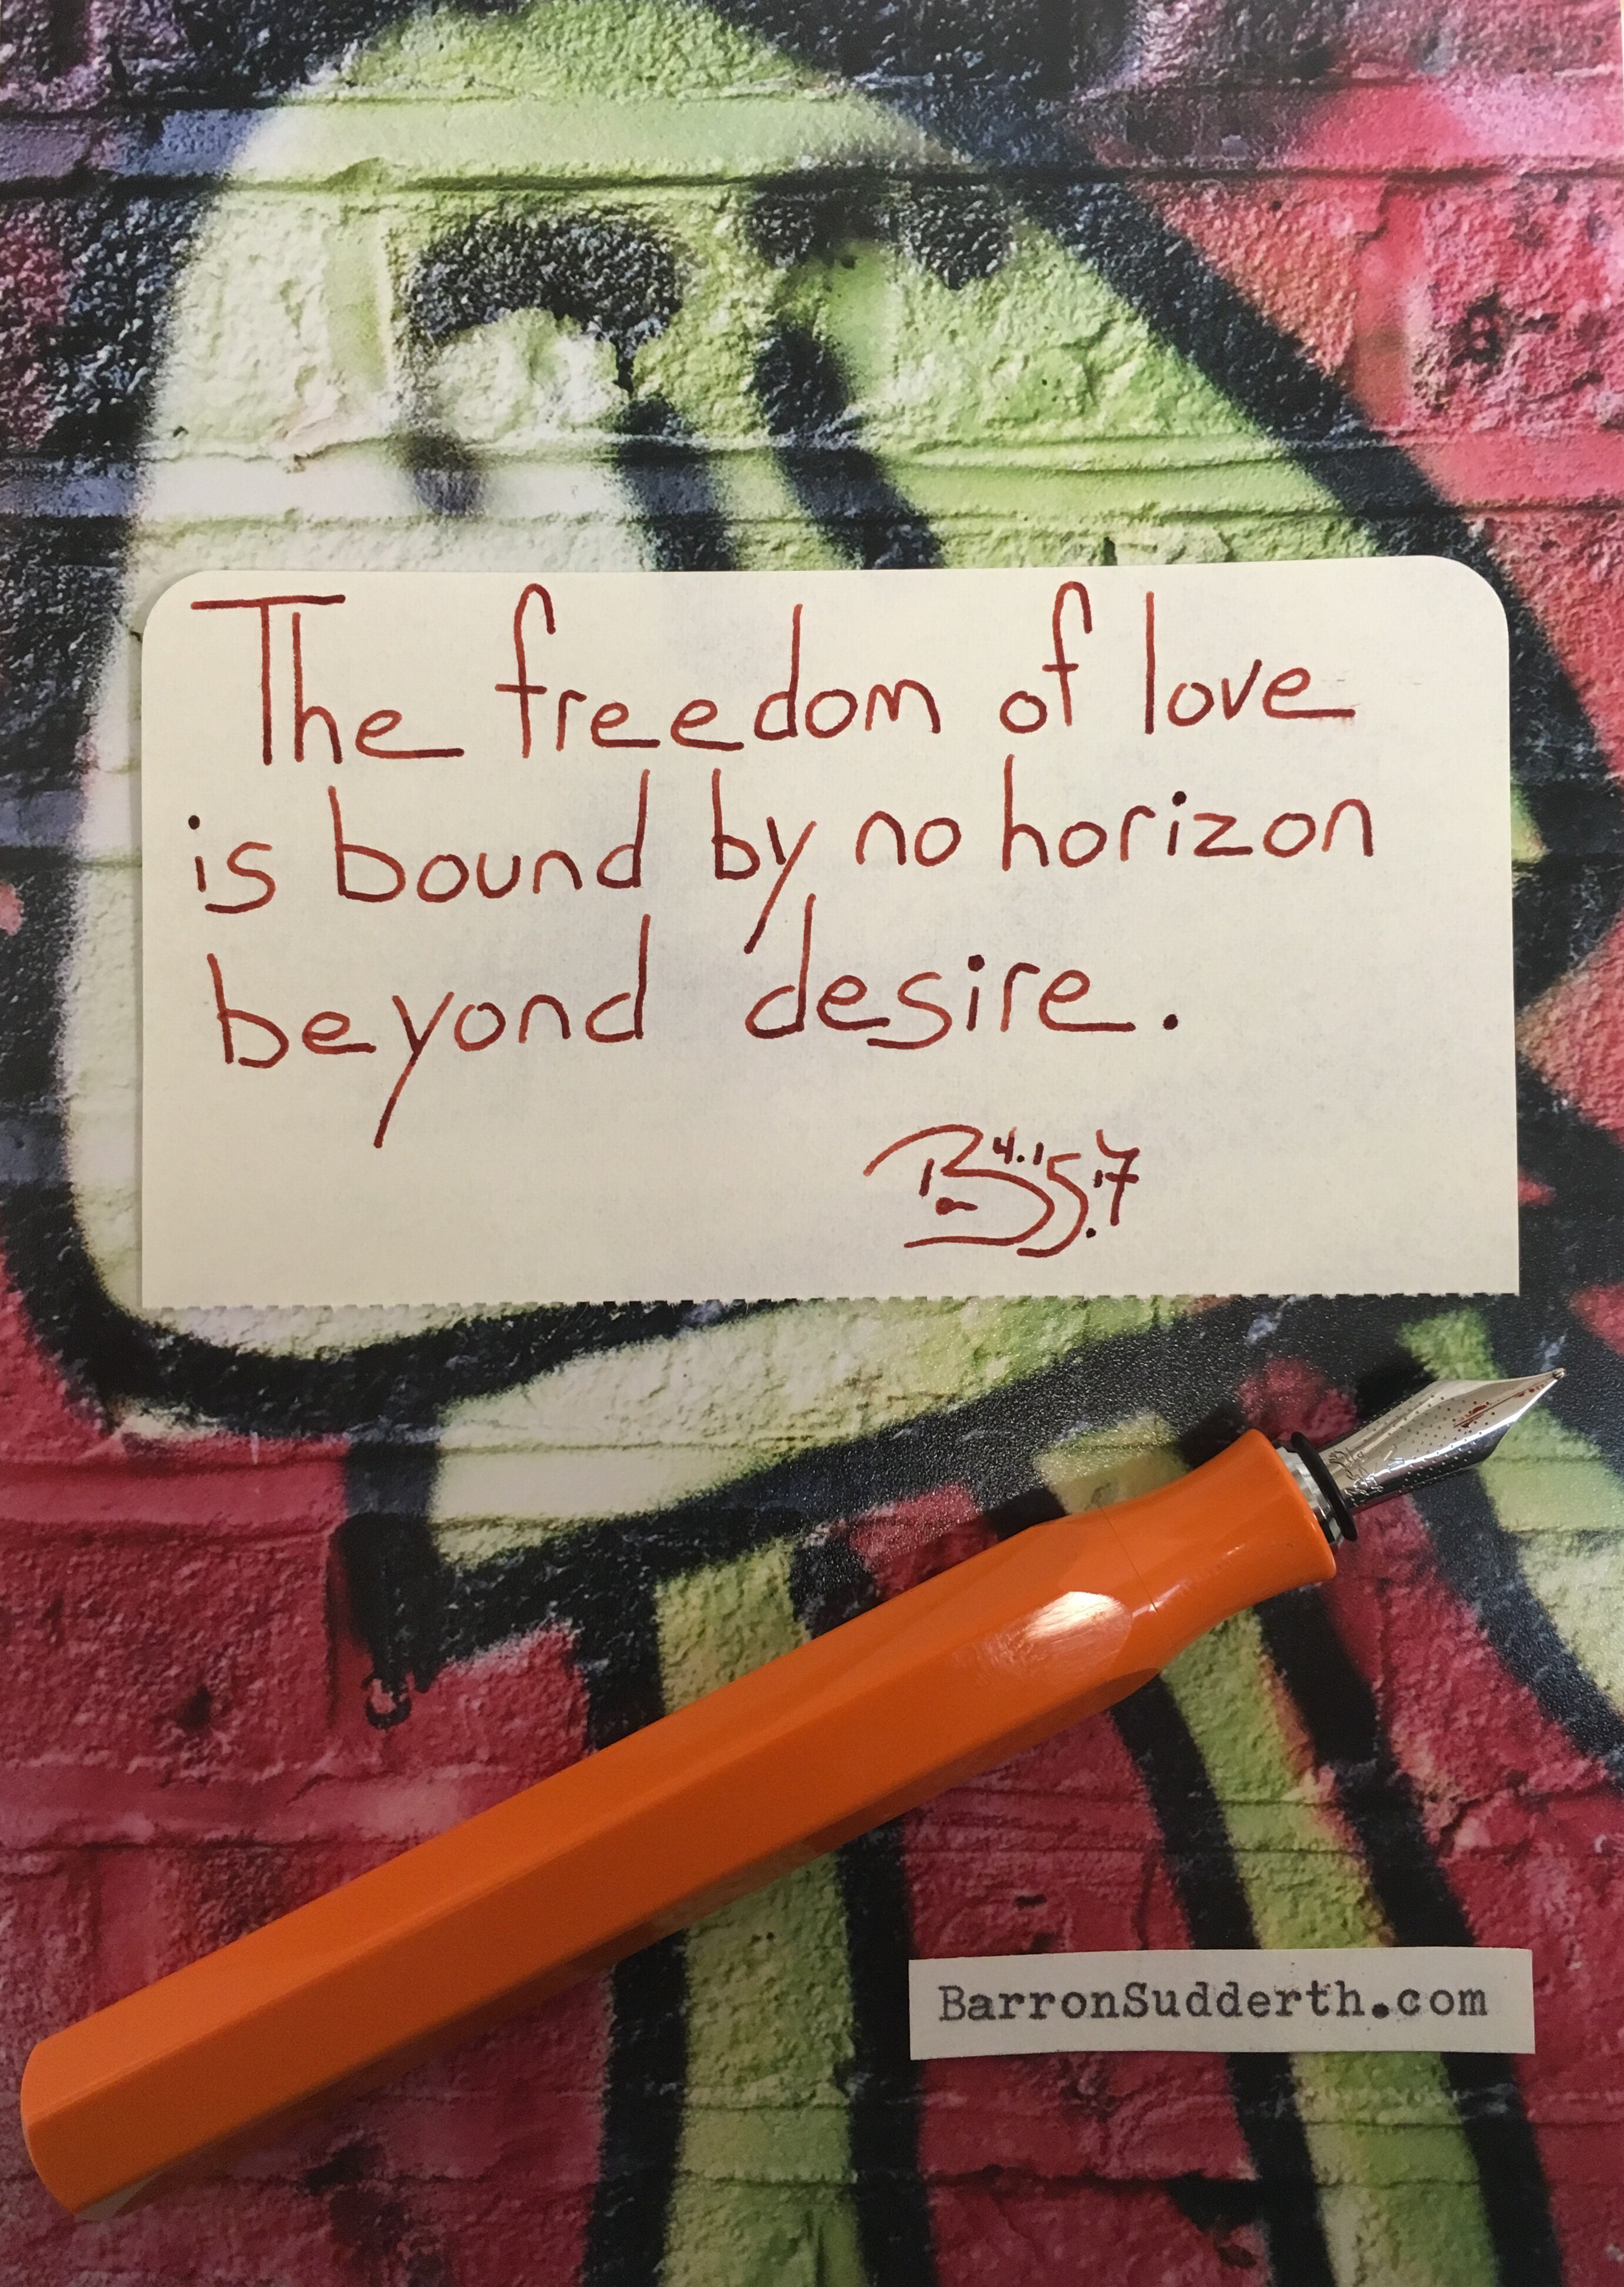 The freedom of love
is bound by no horizon
beyond desire.
BarronSudderth.com